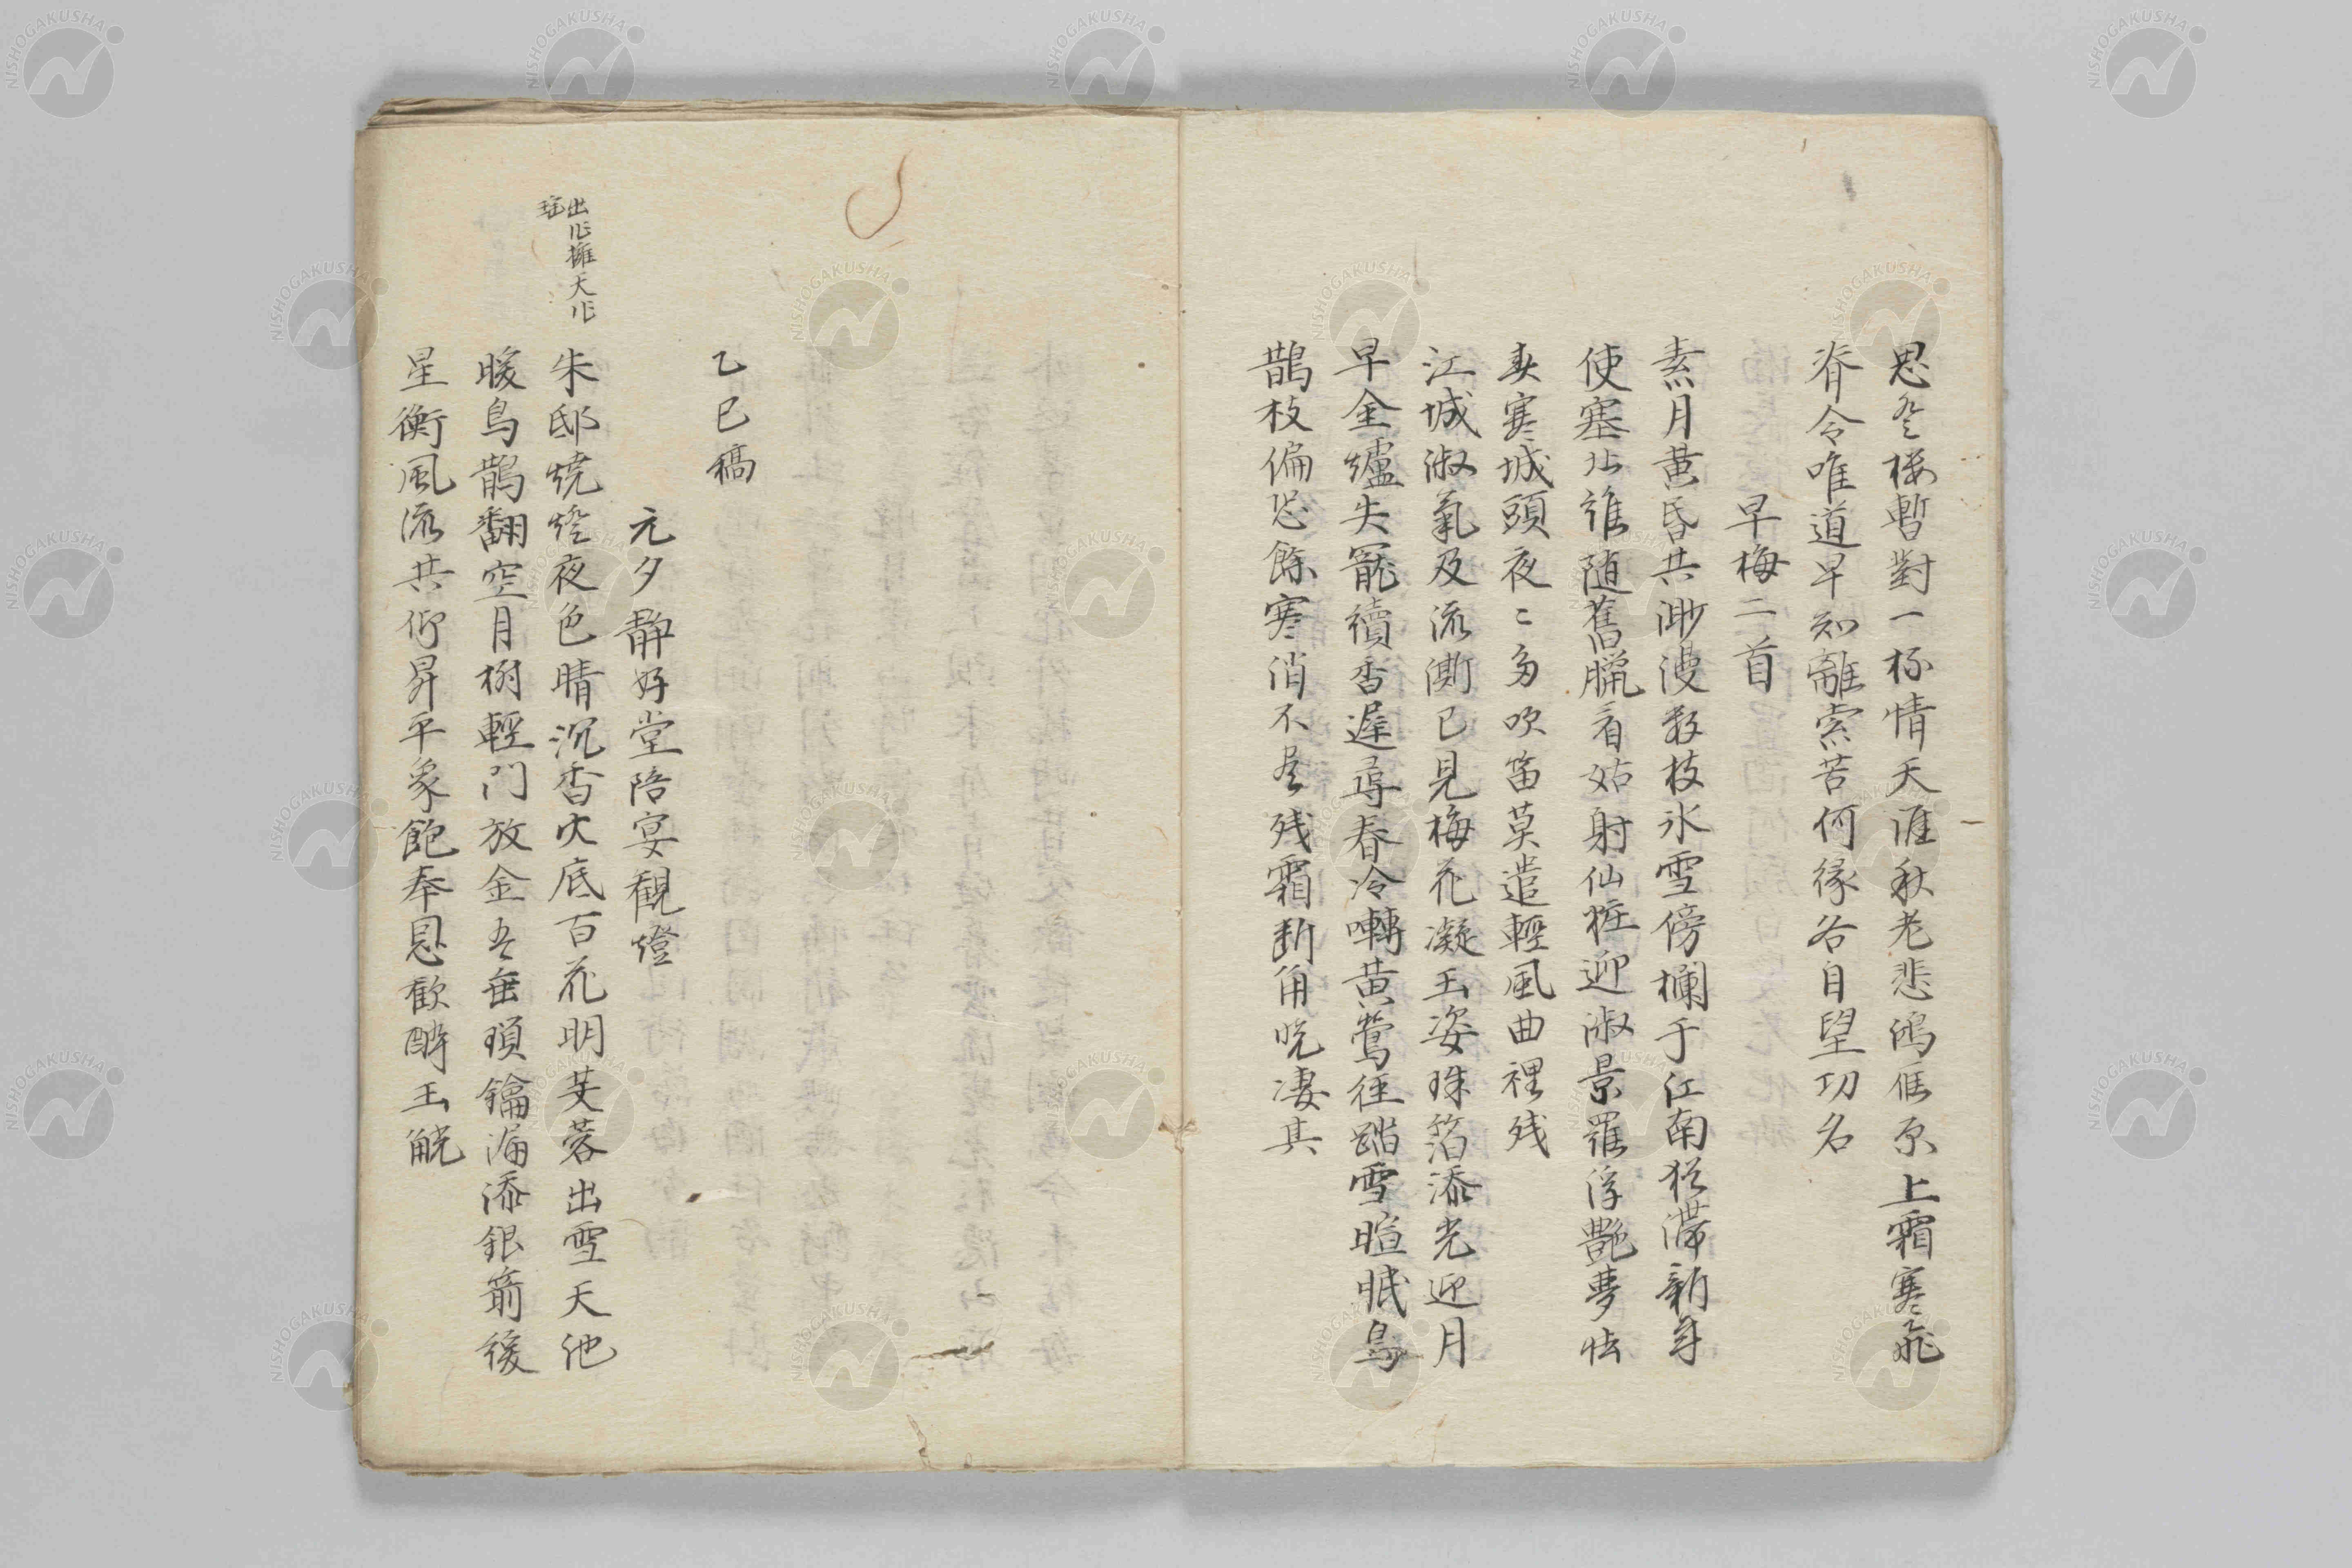 思冬楼暫對一杯情天涯秋老悲鴻侶原上霜寒飛
脊令唯道早知離索苦何縁各自望功名
早梅二首
素月黄昏共渺漫数枝氷雪傍欄干江南猶滞新年
使塞北誰随舊臘看姑射仙粧迎淑景羅浮艶夢怯
春寒城頭夜〻多吹笛莫遣輕風曲裡残
江城淑氣及流澌已見梅花凝玉姿珠箔添光迎月
早金爐失寵續香遅尋春冷囀黄鶯徑踏雪暄眠烏
鵲枝偏恐餘寒消不尽残霜断角晩凄其
乙巳稿
元夕静好堂陪宴観燈
出作擁天作
瑶
朱邸焼燈夜色晴沉香火底百花明芙蓉出雪天池
暖烏鵲翻空月樹輕門放金吾無瑣鑰漏添銀箭緩
星衡風流共仰昇平象飽奉恩歓酔玉觥
NISHOGAKUSHA